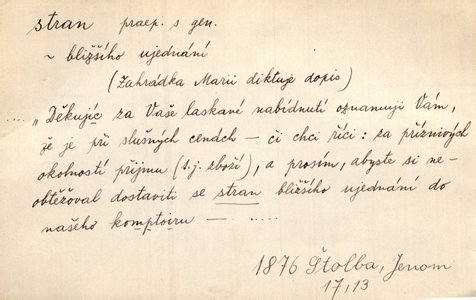 stran praep. s gen.
~ bližšího ujednání
(Zahrádka Marii diktuje dopis)
.... „Děkujíc za Vaše laskavé nabídnutí oznamuji Vám,
že je při slušných cenách – či chci říci: za příznivých
okolností přijmu (t.j. zboží), a prosím, abyste si ne-
obtěžoval dostaviti se stran bližšího ujednání do
našeho komptoiru – ....
1876 Štolba, Jenom
17,13